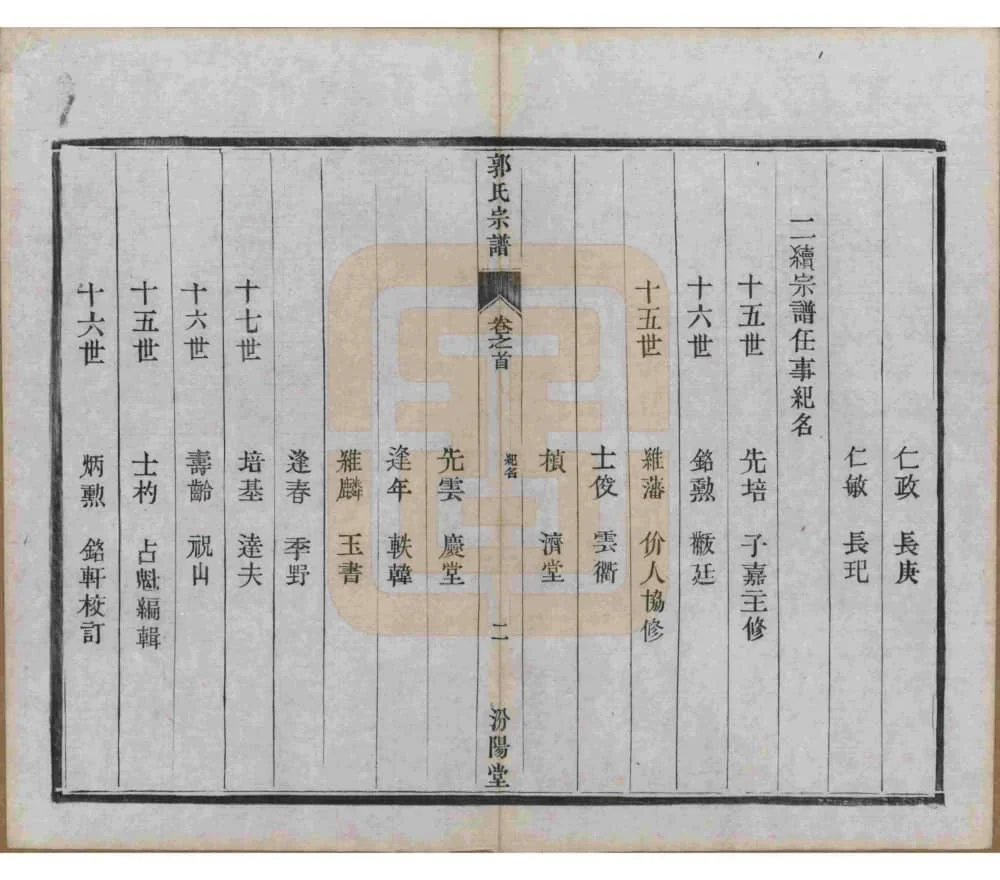 仁政 長庚
仁敏 長玘
二續宗譜任事紀名
十五世 先培 子嘉主修
十六世 銘勲 黻廷
十五世 維藩 价人協修
士俊 雲衢
楨 濟堂
郭氏宗譜 卷之首 紀名 二 汾陽堂
先雲 慶堂
逢年 軼韓
維麟 玉書
逢春 季野
十七世 培基 逵夫
十六世 壽齡 祝山
十五世 士杓 占魁編輯
十六世 炳勲 銘軒校訂